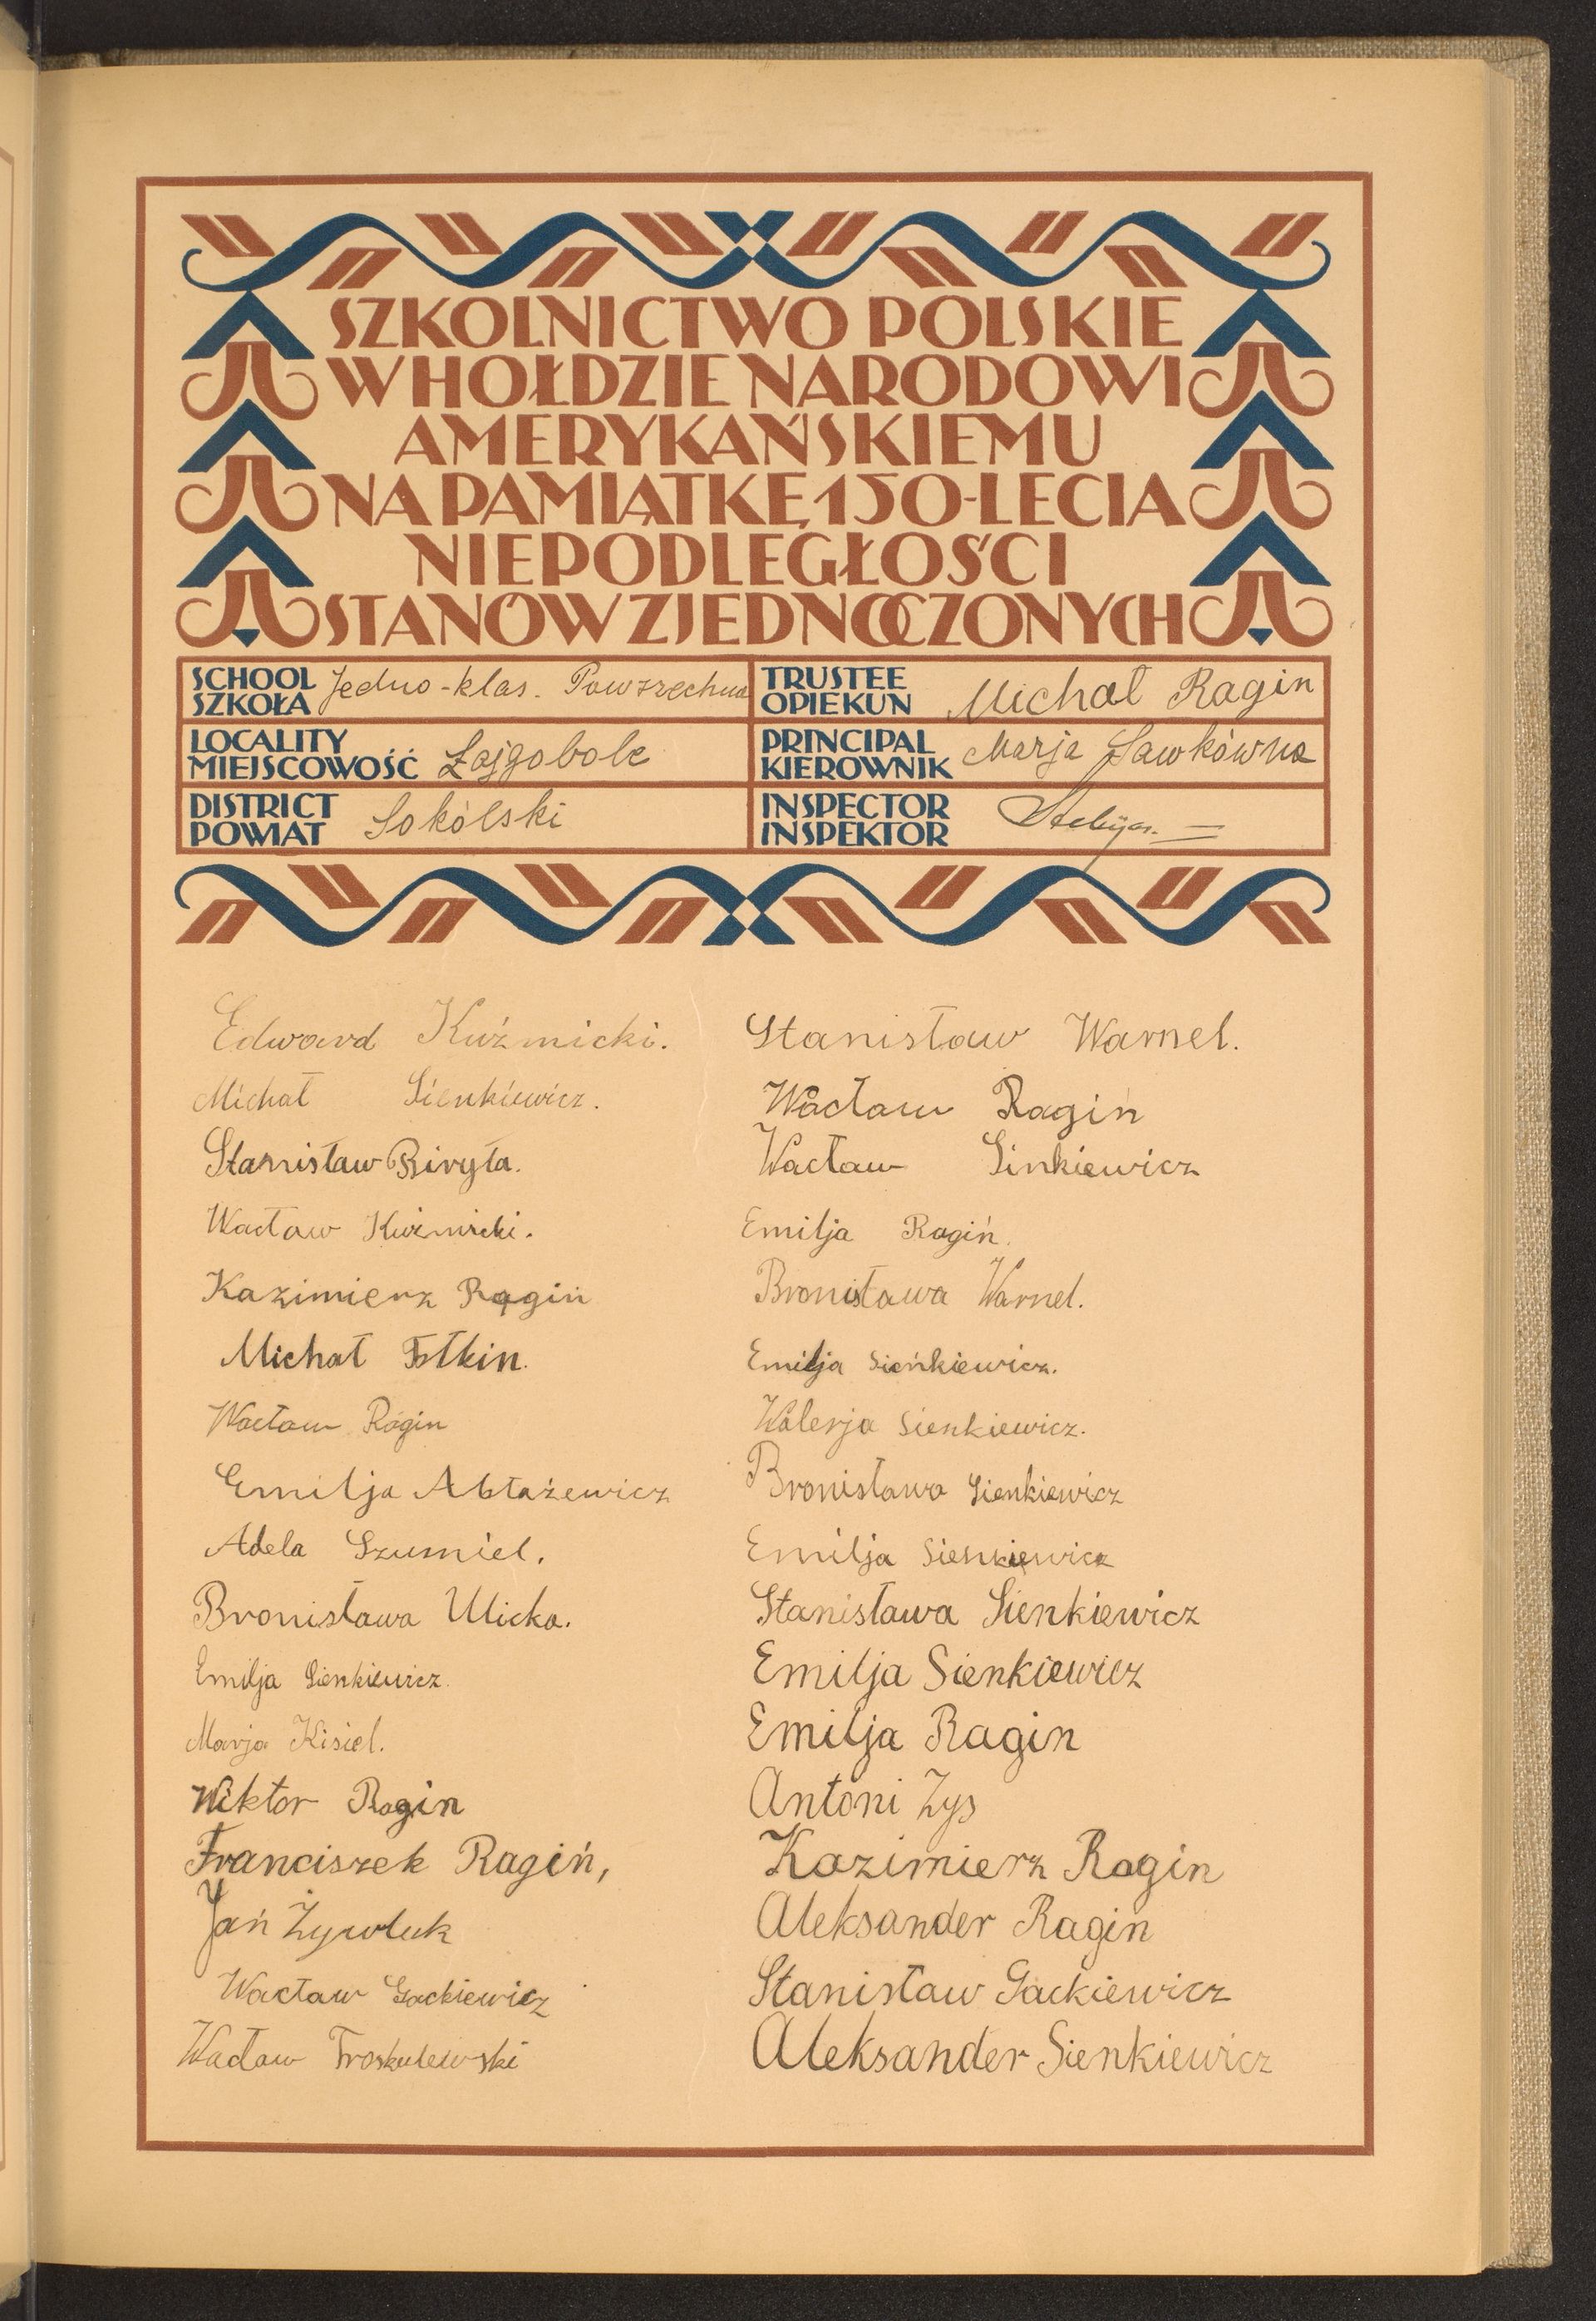 SZKOLNICTWO POLSKIE
W HOŁDZIE NARODOWI
AMERYKAŃSKIEMU
NA PAMIĄTKĘ 150-LECIA
NIEPODLEGŁOŚCI
STANÓW ZJEDNOCZONYCH
SCHOOL
SZKOŁA Jedno-klas. Powszechna
TRUSTEE
OPIEKUN Michał Ragin
LOCALITY
MIEJSCOWOŚĆ Łajgobole
PRINCIPAL
KIEROWNIK Marja Sawkówna
DISTRICT
POWIAT Sokólski
INSPECTOR
INSPEKTOR
Edward Kuźmicki.
Michał Sienkiewicz.
Stanisław Biryła.
Wacław Kuźmicki.
Kazimierz Ragin
Michał Fółkin.
Wacław Ragin
Emilja Abłażewicz
Adela Szumiel.
Bronisława Ulicka.
Emilja Sienkiewicz.
Marja Kisiel.
Wiktor Ragin
Franciszek Ragiń,
Jań Żywluk
Wacław Gackiewicz
Wacław Troskulewski
Stanisław Warnel.
Wacław Ragiń
Wacław Sinkiewicz
Emilja Ragiń.
Bronisława Warnel.
Emilja Sieńkiewicz.
Walerja Sienkiewicz.
Bronisława Sienkiewicz
Emilja Sienkiewicz
Stanisława Sienkiewicz
Emilja Sienkiewicz
Emilja Ragin
Antoni Zys
Kazimierz Ragin
Aleksander Ragin
Stanisław Gackiewicz
Aleksander Sienkiewicz